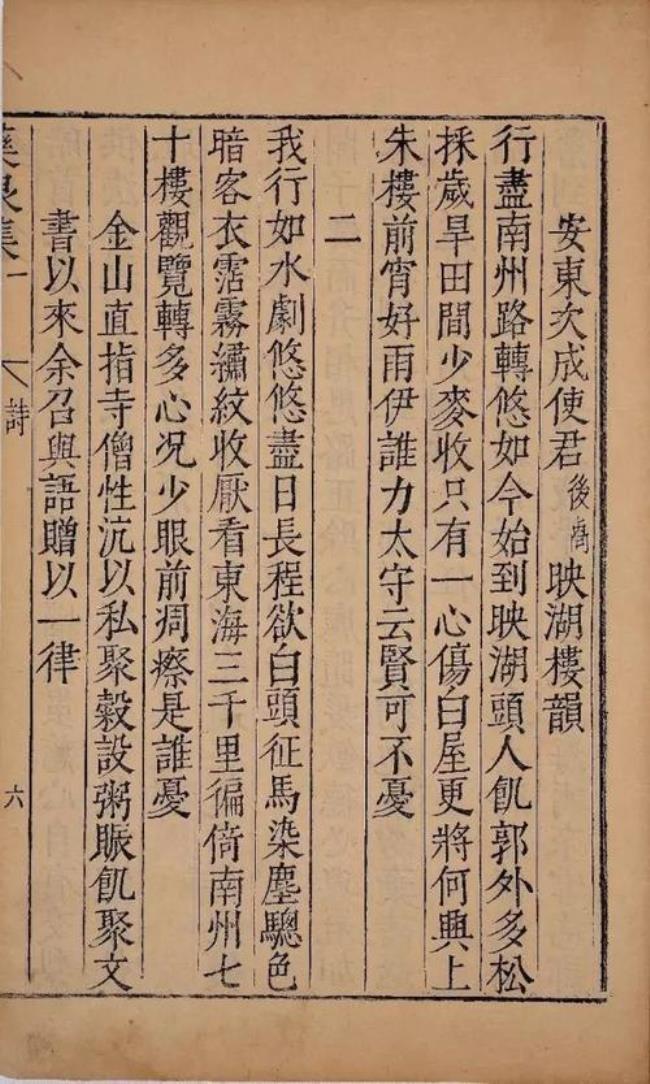 安東次成使君後映湖樓韻
行盡南州路轉悠如今始到映湖頭人飢郭外多松
採歲旱田間少麥收只有一心傷白屋更將何興上
朱樓前宵好雨伊誰力太守云賢可不憂
二
我行如水劇悠悠盡日長程欲白頭征馬染塵驄色
暗客衣霑霧繡紋收厭看東海三千里徧倚南州七
十樓觀覽轉多心况少眼前凋瘵是誰憂
金山直指寺僧性沆以私聚穀設粥賑飢聚文
書以來余召與語贈以一律
集一
詩
六